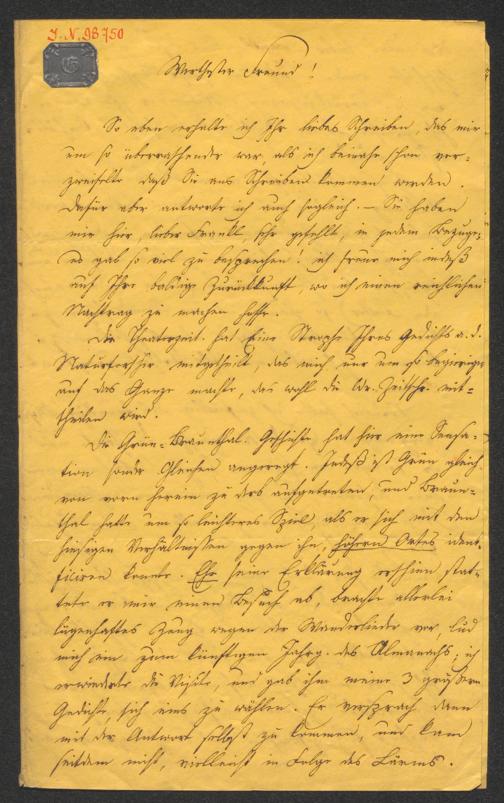 J. N. 98750
Werthester Freund!
So eben erhalte ich Ihr liebes Schreiben, das mir
um so überraschender war, als ich beinahe schon ver-
zweifelte daß Sie ans Schreiben kommen werden.
Dafür aber antworte ich auch sogleich. – Sie haben
mir hier, lieber Frankl sehr gefehlt, in jedem Bezuge,
es gab so viel zu besprechen! ich freue mich indeß
auf Ihre baldige Zurückkunft, wo ich einen reichlichen
Nachtrag zu machen hoffe.
Die Theaterzeit. hat Eine Strophe Ihres Gedichts a. d.
Naturforscher mitgetheilt, das mich nur um so begieriger
auf das Ganze machte, das wohl die Wr. Zeitschr. mit-
theilen wird.
Die Grün-Braunthal. Geschichte hat hier eine Sensa-
tion sonder Gleichen angeregt. Indeß ist Grün gleich
von vorn herein zu derb aufgetreten, und Braun-
thal hatte um so leichteres Spiel, als er sich mit den
hiesigen Verhältnissen gegen ihn höhern Ortes ident.
ificiren konnte. Ehe seine Erklärung erschien, stat-
tete er mir einen Besuch ab, brachte allerlei
lügenhaftes Zeug wegen der Wanderlieder vor, lud
mich ein zum künftigen Jahrg. des Almanachs; ich
erwiederte die Visite, und gab ihm meine 3 größern
Gedichte, sich eins zu wählen. Er versprach dann
mit der Antwort selbst zu kommen, und kam
seitdem nicht, vielleicht in Folge des Lärms.